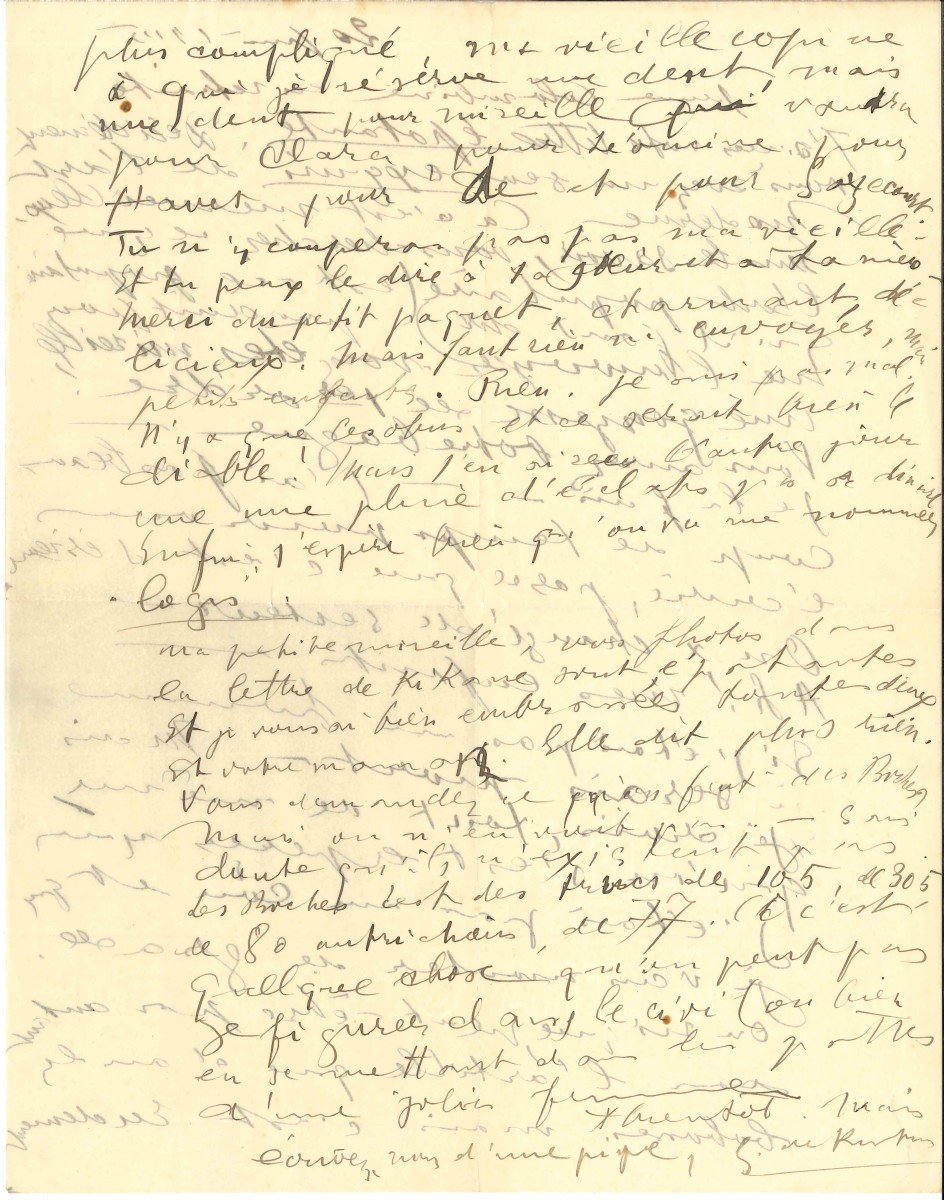 plus compliqué ma vieille copine
à qui je réserve une dent, mais
une dent pour mireille qui vaudra
pour Clara pour Léoncine pour
Havet pour De et pour Soyecourt.
Tu n'y couperas pas pas ma vieille.
Et tu peux le dire à ta sœur et à ta mère
Merci du petit paquet, charmant, dé-
licieux. Mais faut rien m'envoyer, mes
petits enfants. Rien. je suis pas mal,
N'y a que ces obus et ce serait bien le
diable! Mais j'en ai reçu l'autre jour
une pluie d'éclats
Enfin, j'espère bien qu'on va me nommer
logis.
ma petite mireille, vos photos dans
la lettre de KiKane sont épatantes
Et je vous ai bien embrassées toutes deux
Et votre maman. Elle dit plus rien.
Vous demandez ce qu'en font des Boches
Mais on n'en voit pas. — Sans
doute qu'ils n'existent pas.
Les Boches c'est des trucs de 105, de 305
de 80 autrichiens, de 77. Et c'est
quelque chose qu'on peut pas
se figurer dans le civil ou bien
en se mettant dans les pattes
d'une jolie femme
A bientôt. Mais
écrivez nous d'une pipe,